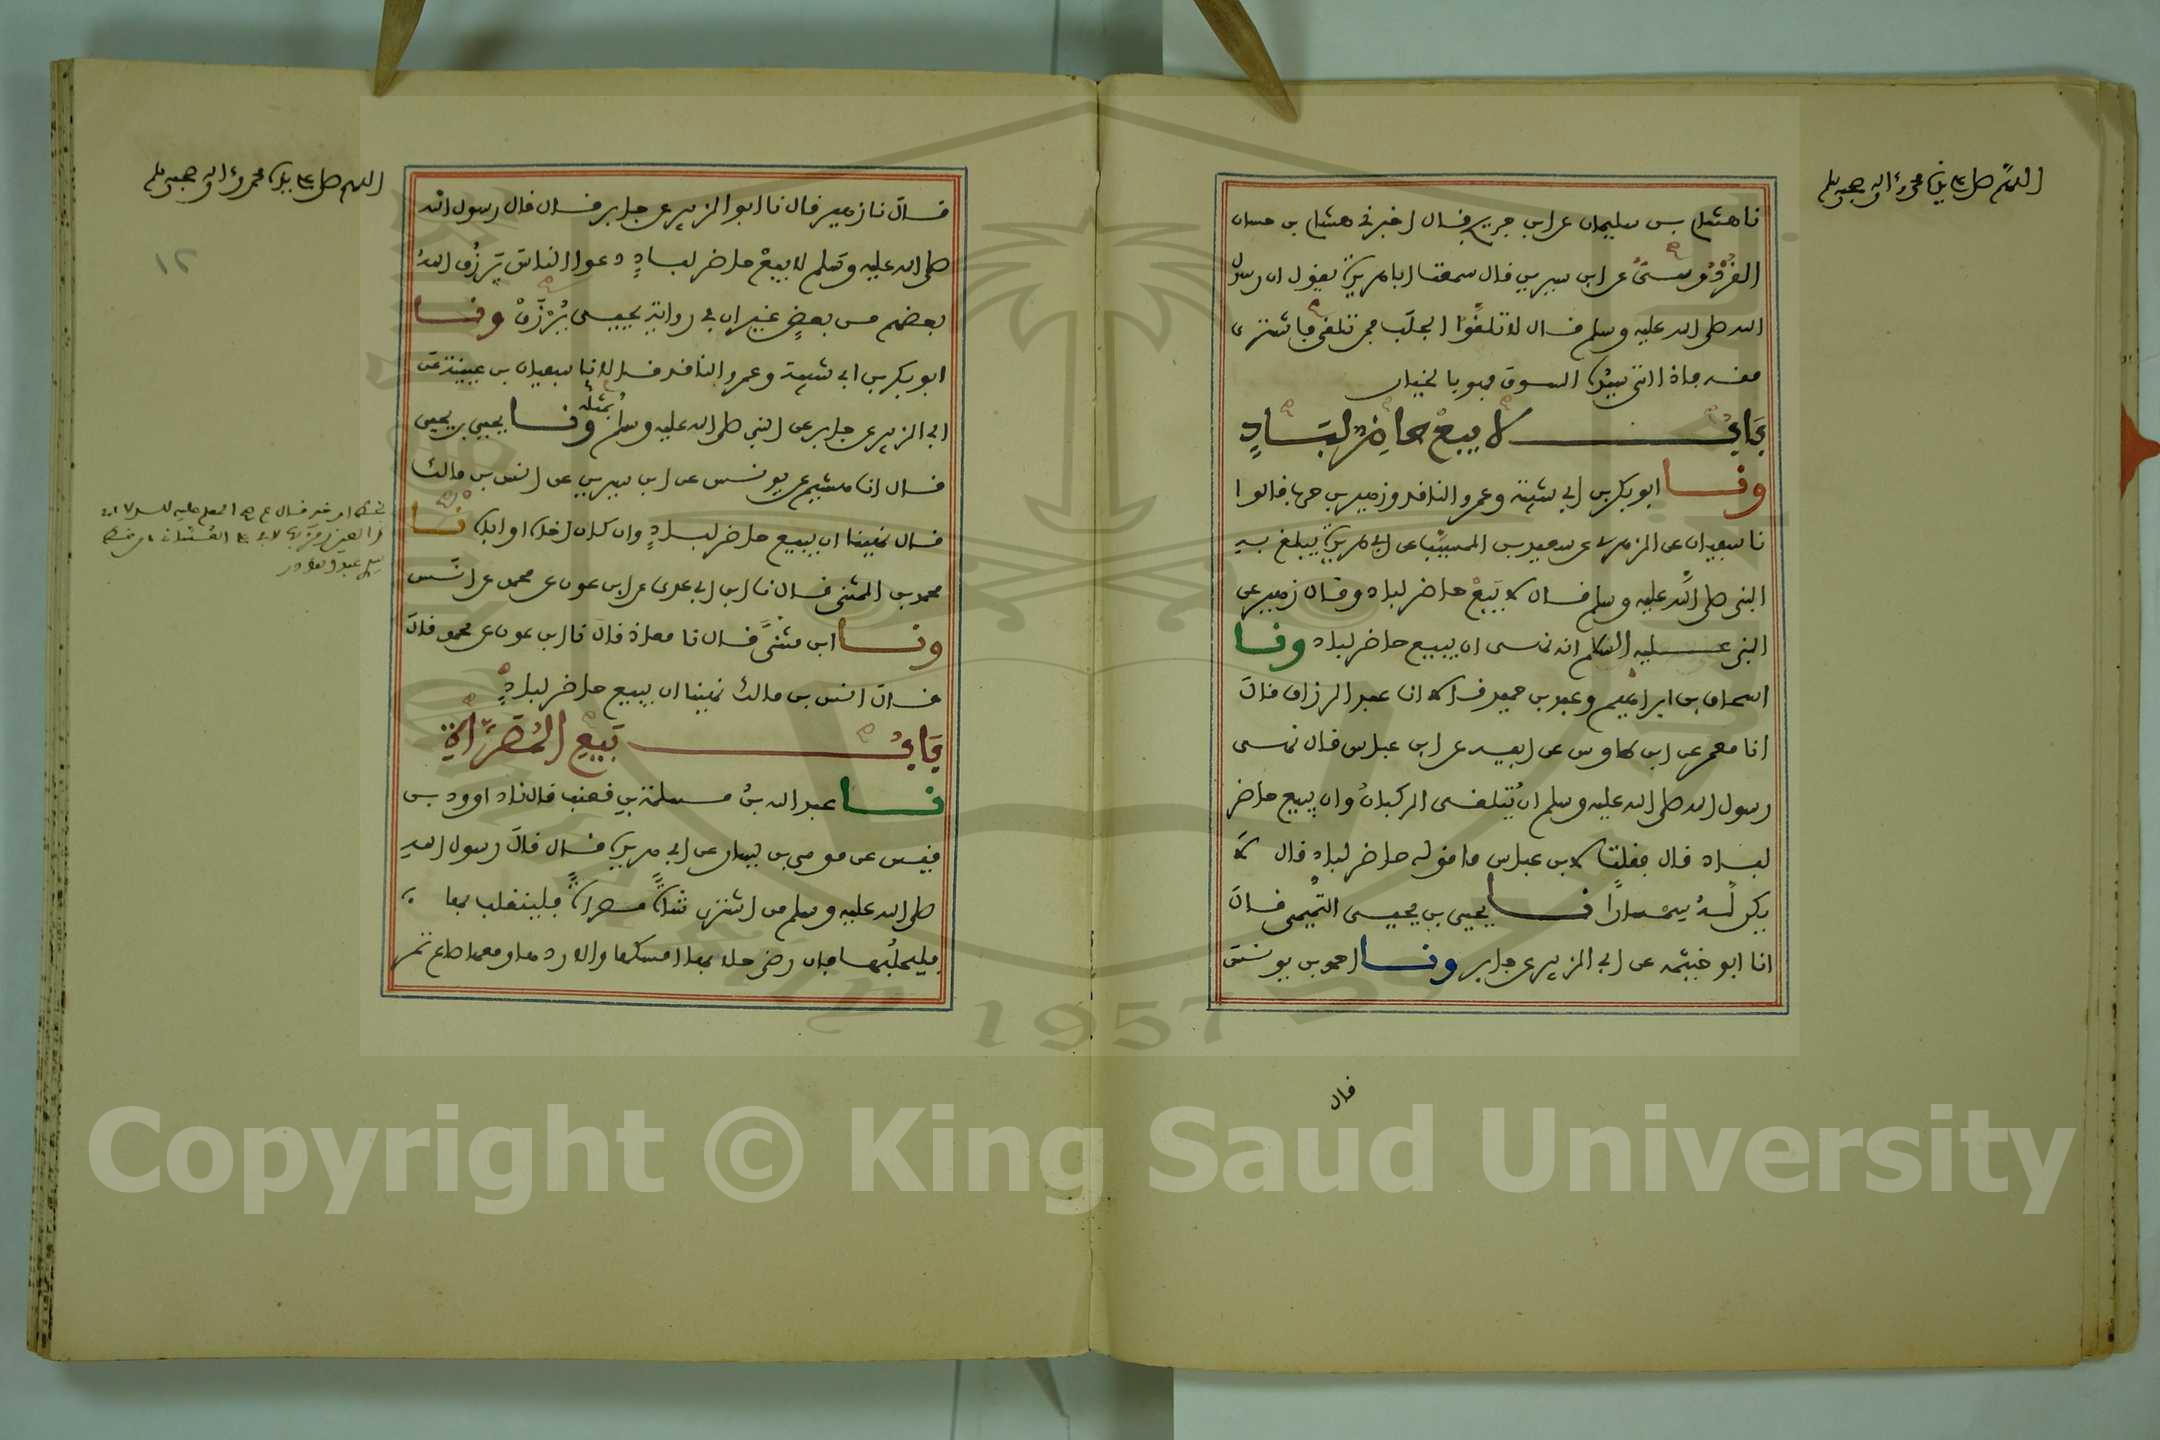 اللهم صل على سيدنا محمد وءاله وصحبه وسلم
نا هشام بن سليمان عن ابن جريج قال اخبرني هشام بن حسان
القردوسي عن ابن سيرين قال سمعت ابا هريرة يقول ان رسول
الله صلى الله عليه وسلم قال لا تلقوا الجلب فمن تلقى فاشترى
منه فاذا اتى سيده السوق فهو بالخيار
باب لا يبع حاضر لباد
ونا ابو بكر بن ابي شيبة وعمرو الناقد وزهير بن حرب قالوا
نا سفيان عن الزهري عن سعيد بن المسيب عن ابي هريرة يبلغ به
النبي صلى الله عليه وسلم قال لا يبع حاضر لباد وقال زهير عن
النبي عليه السلام انه نهى ان يبيع حاضر لباد ونا
اسحاق بن ابراهيم وعبد بن حميد قالا انا عبد الرزاق قال
انا معمر عن ابن طاوس عن ابيه عن ابن عباس قال نهى
رسول الله صلى الله عليه وسلم ان يتلقى الركبان وان يبيع حاضر
لباد قال فقلت لابن عباس ما قوله حاضر لباد قال لا
يكن له سمسارا نا يحيى بن يحيى التميمي قال
انا ابو خيثمة عن ابي الزبير عن جابر ونا احمد بن يونس
قال
اللهم صل على سيدنا محمد وءاله وصحبه وسلم
١٢
قال نا زهير قال نا ابو الزبير عن جابر قال قال رسول الله
صلى الله عليه وسلم لا يبع حاضر لباد دعوا الناس يرزق الله
بعضهم من بعض غير ان في رواية يحيى يرزق ونا
ابو بكر بن ابي شيبة وعمرو الناقد قالا نا سفيان بن عيينة عن
ابي الزبير عن جابر عن النبي صلى الله عليه وسلم بمثله ونا يحيى بن يحيى
قال انا هشيم عن يونس عن ابن سيرين عن انس بن مالك
قال نهينا ان يبيع حاضر لباد وان كان اخاه او اباه نا
محمد بن المثنى قال نا ابن ابي عدي عن ابن عون عن محمد عن انس
ونا ابن مثنى قال نا معاذ قال نا ابن عون عن محمد قال
قال انس بن مالك نهينا ان يبيع حاضر لباد
باب بيع المصراة
نا عبد الله بن مسلمة بن قعنب قال نا داوود بن
قيس عن موسى بن يسار عن ابي هريرة قال قال رسول الله
صلى الله عليه وسلم من اشترى شاة مصراة فلينقلب بها
فليحلبها فان رضي حلابها امسكها والا ردها ومعها صاع تمر
Copyright © King Saud University
1957